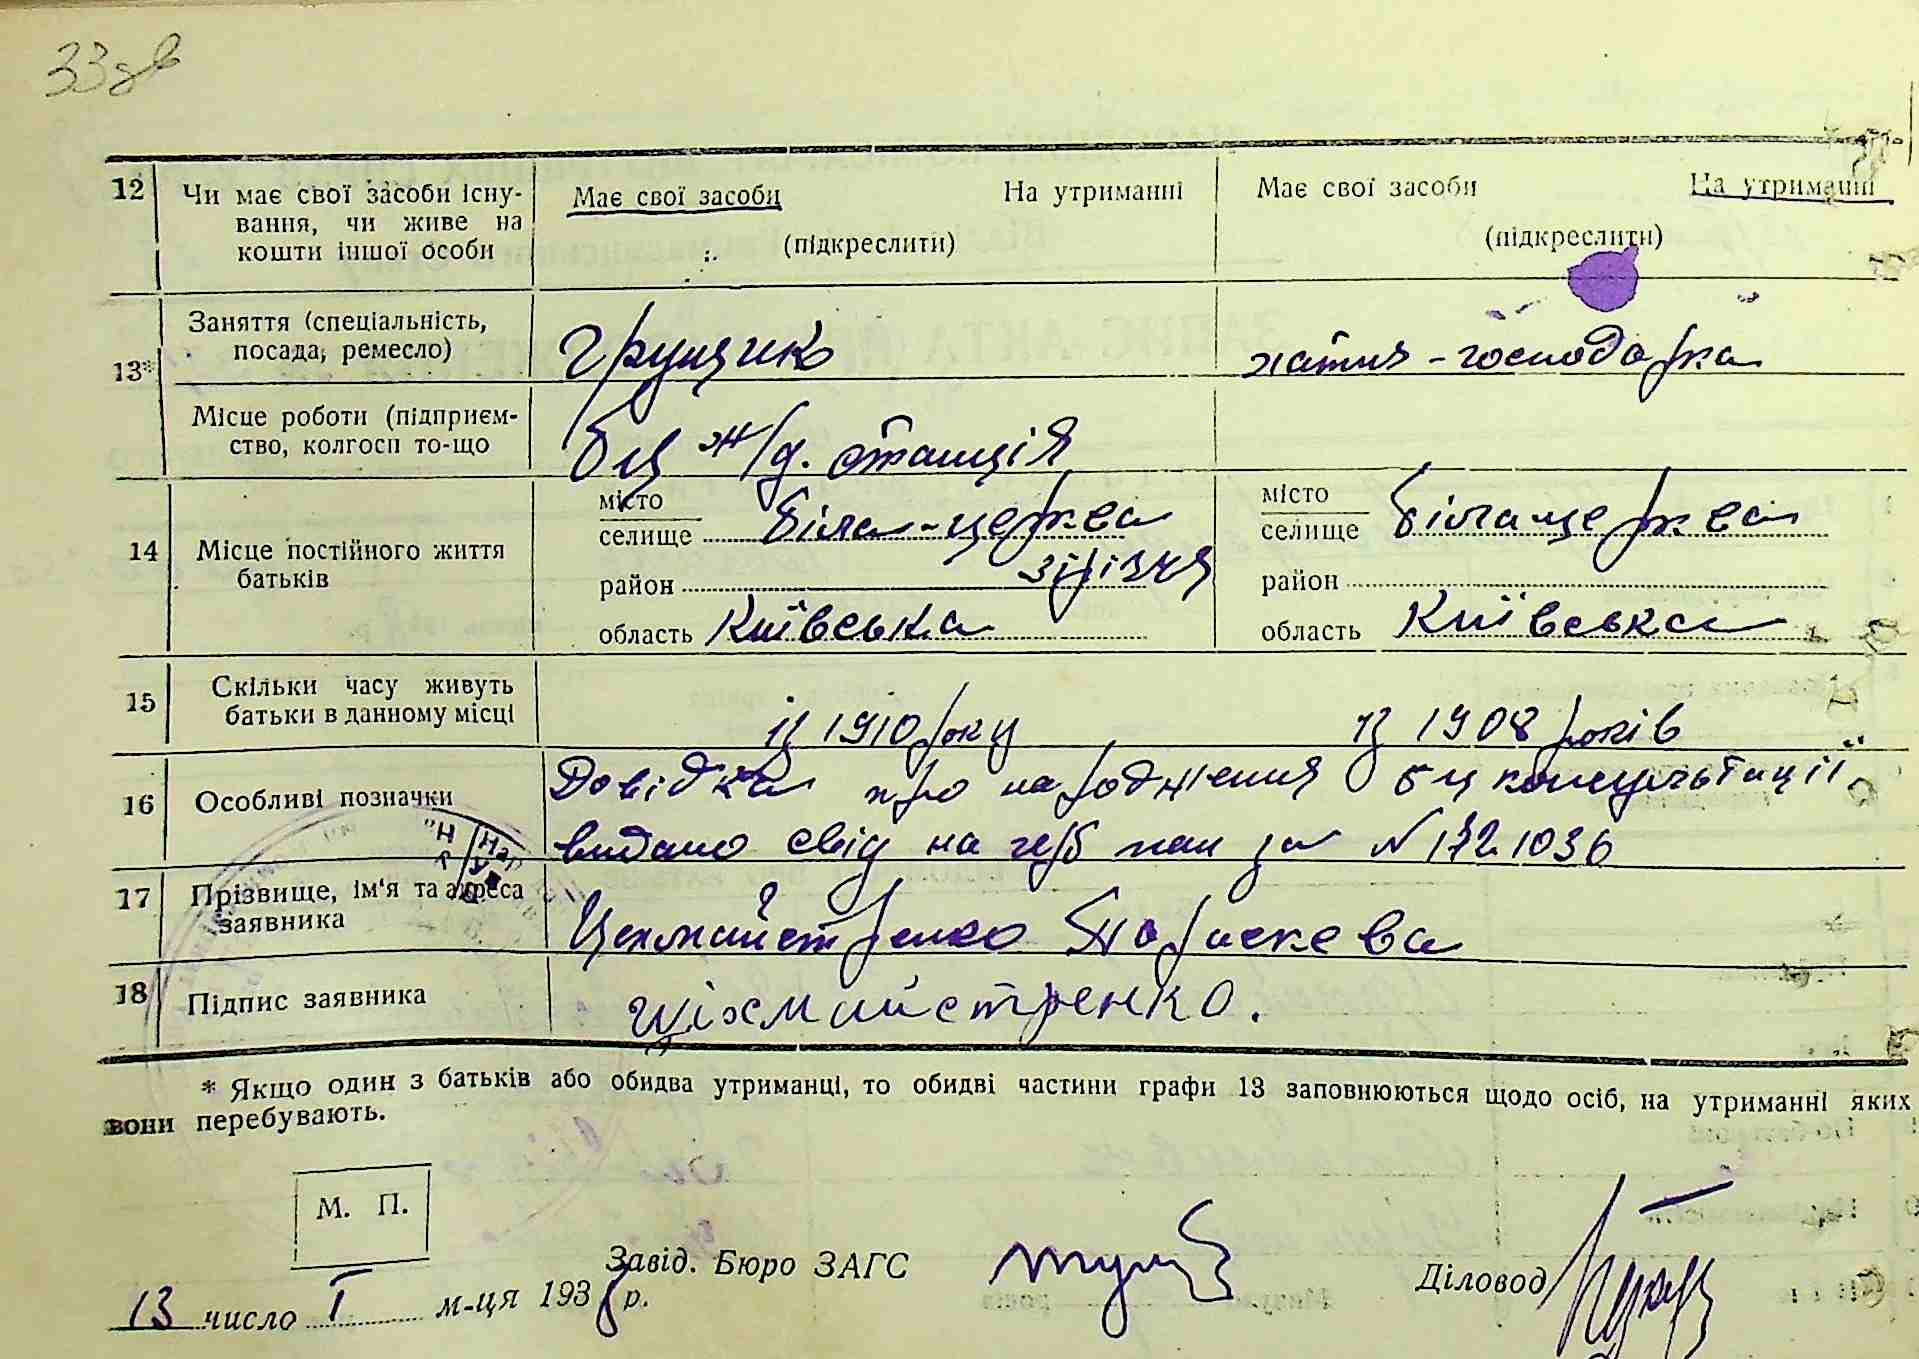 33зв
12 Чи має свої засоби існу-
вання, чи живе на
кошти іншої особи
Має свої засоби На утриманні
(підкреслити)
Має свої засоби На утриманні
(підкреслити)
13* Заняття (спеціальність,
посада, ремесло)
грущик
хатня-господарка
Місце роботи (підприєм-
ство, колгосп то-що
бц ж/д. станція
14 Місце постійного життя
батьків
місто
селище Біла-церква
район залізня
область Київська
місто
селище Білацерква
район
область Київська
15 Скільки часу живуть
батьки в данному місці
із 1910 року
із 1908 років
16 Особливі позначки
Довідка про народження бц консультації
видано свід на герб пап за № 1721036
17 Прізвище, ім'я та адреса
заявника
Цехмайстренко Параскева
18 Підпис заявника
Цiхмистренко.
* Якщо один з батьків або обидва утриманці, то обидві частини графи 13 заповнюються щодо осіб, на утриманні яких
вони перебувають.
М. П.
Завід. Бюро ЗАГС
Діловод
13 число I м-ця 1938 р.